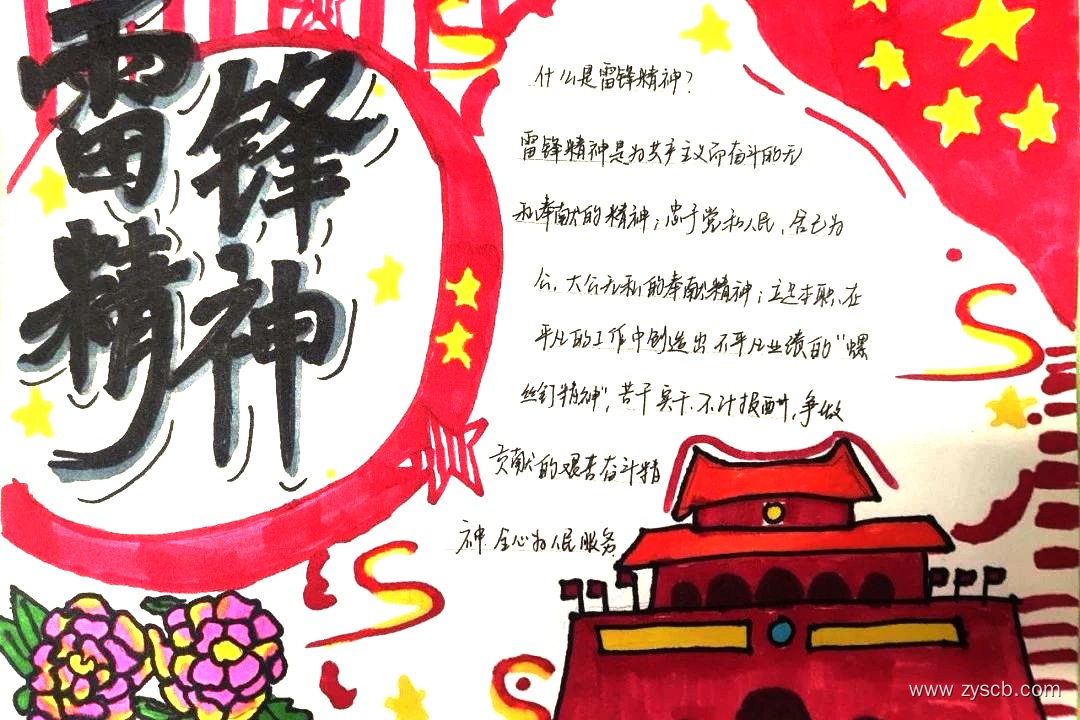 雷锋
精神
什么是雷锋精神?
雷锋精神是为共产主义而奋斗的无
私奉献的精神;忠于党和人民、舍己为
公、大公无私的奉献精神;立足本职、在
平凡的工作中创造出不平凡业绩的"螺
丝钉精神",苦干实干、不计报酬、争做
贡献的艰苦奋斗精
神.全心为人民服务.
www.zyscb.com